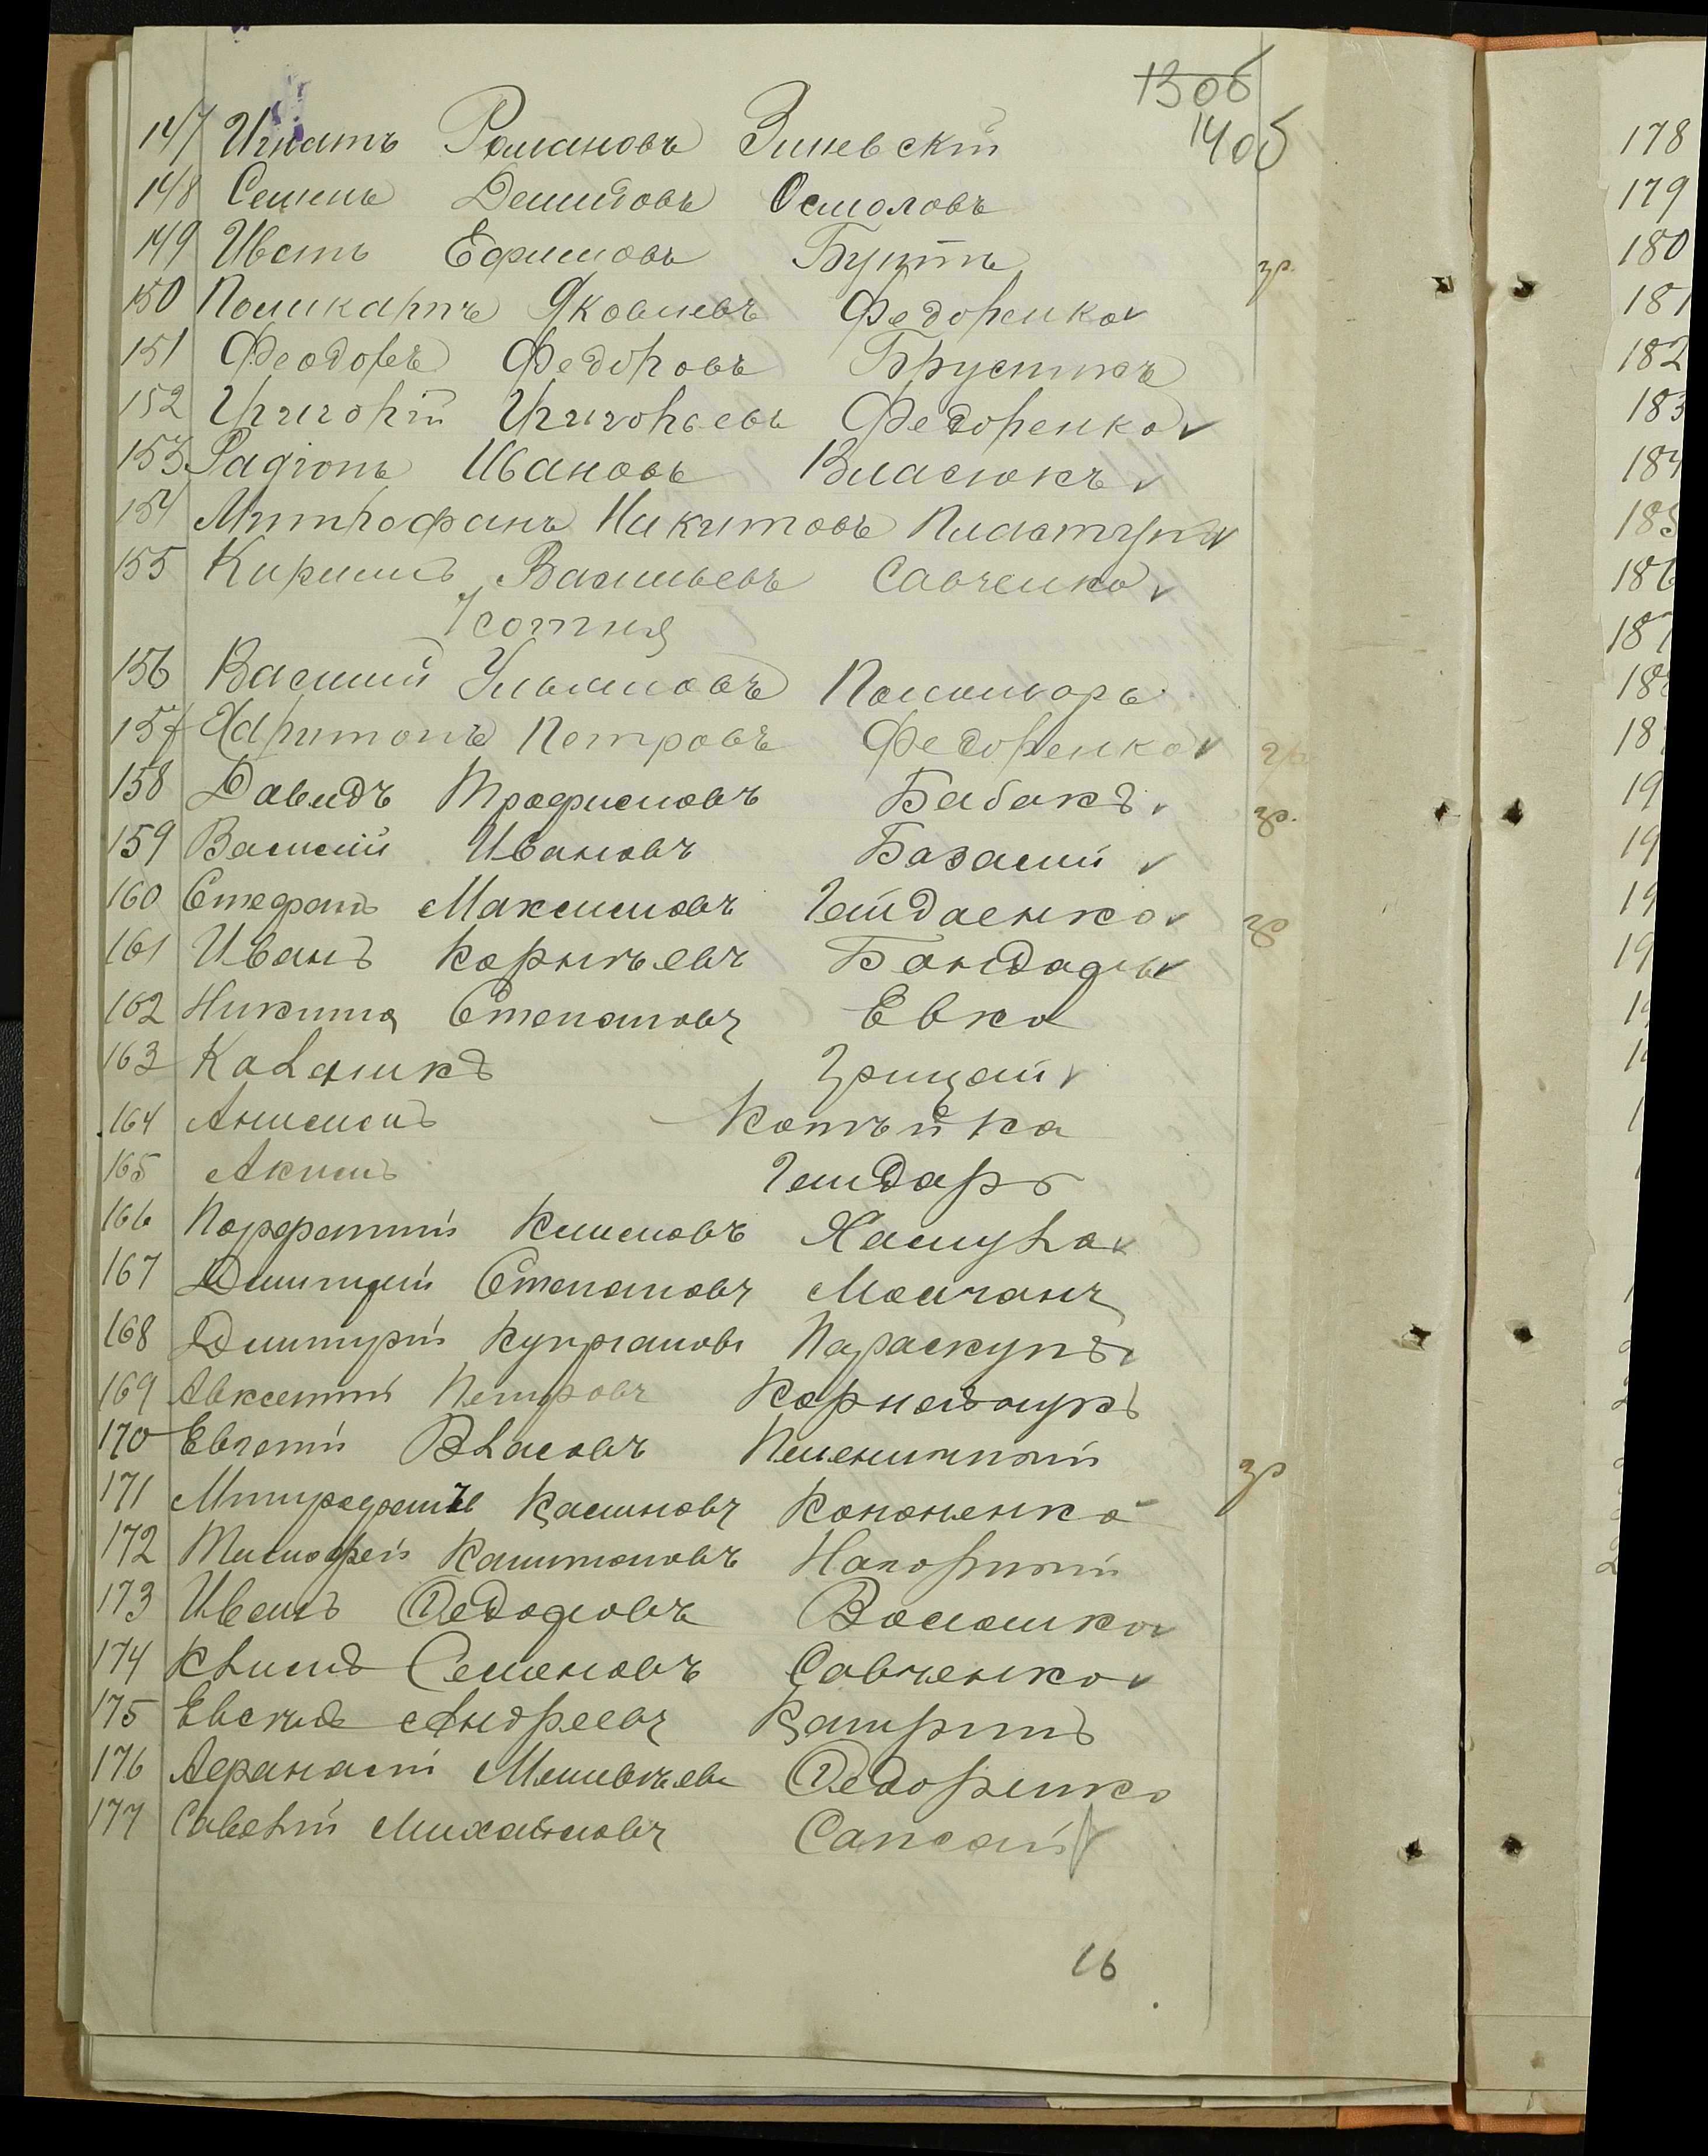 13 об
14 об
147 Игнатъ Романовъ Зиневскій
148 Семенъ Демидовъ Осмоловъ
149 Иванъ Ефимовъ Бунтъ гр.
150 Поликарпъ Яковлевъ Федоренко ✓
151 Феодоръ Федоровъ
152 Григорій Григорьевъ Федоренко ✓
153 Радіонъ Ивановъ Власюкъ ✓
154 Митрофанъ Никитовъ Пластунъ ✓
155 Кирилъ Васильевъ Савченко ✓
7 сотня
156 Василий Ульяновъ Пономарь
157 Харитонъ Петровъ Федоренко ✓ гр.
158 Давидъ Трофимовъ Бабакъ ✓ гр.
159 Василій Ивановъ Базалий ✓
160 Стефанъ Максимовъ Гайдаенко ✓ гр
161 Иванъ Корнѣевъ Бондарь ✓
162 Никита Степановъ Евко
163 Калиникъ Грицай ✓
164 Анисимъ Котѣйка
165 Акимъ Гайдаръ
166 Порфирій Климовъ Хамула ✓
167 Дмитрій Степановъ Молчанъ
168 Дмитрій Купріановъ Параскунъ ✓
169 Авксентій Петровъ
170 Евгеній Власовъ Пшеничный гр
171 Митрофанъ Касяновъ Кононенко
172 Тимофей Капитоновъ Нагорный
173 Иванъ Федоровъ Волошко ✓
174 Климъ Семеновъ Савченко ✓
175 Евсѣй Андреевъ
176 Афанасій Федоренко
177 Савелій Михайловъ Сапсай ✓
16
178
179
180
181
182
183
184
185
186
187